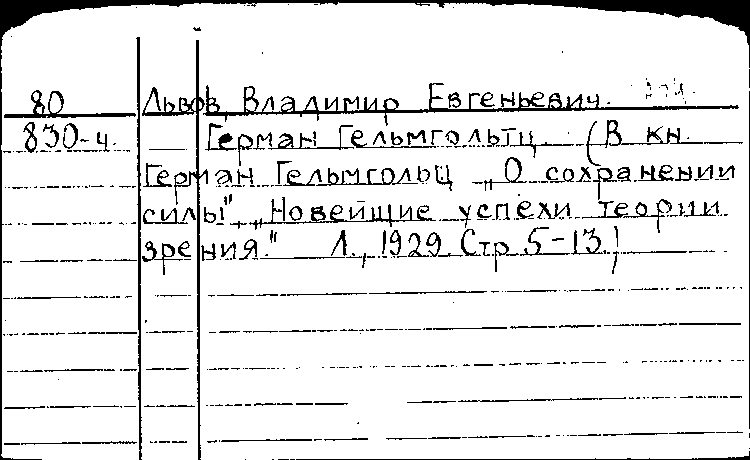 80 Львов, Владимир Евгеньевич.
830-ч. Герман Гельмгольтц. (В кн.
Герман Гельмгольц „О сохранении
силы", „Новейшие успехи теории
зрения." Л., 1929. Стр. 5-13.)